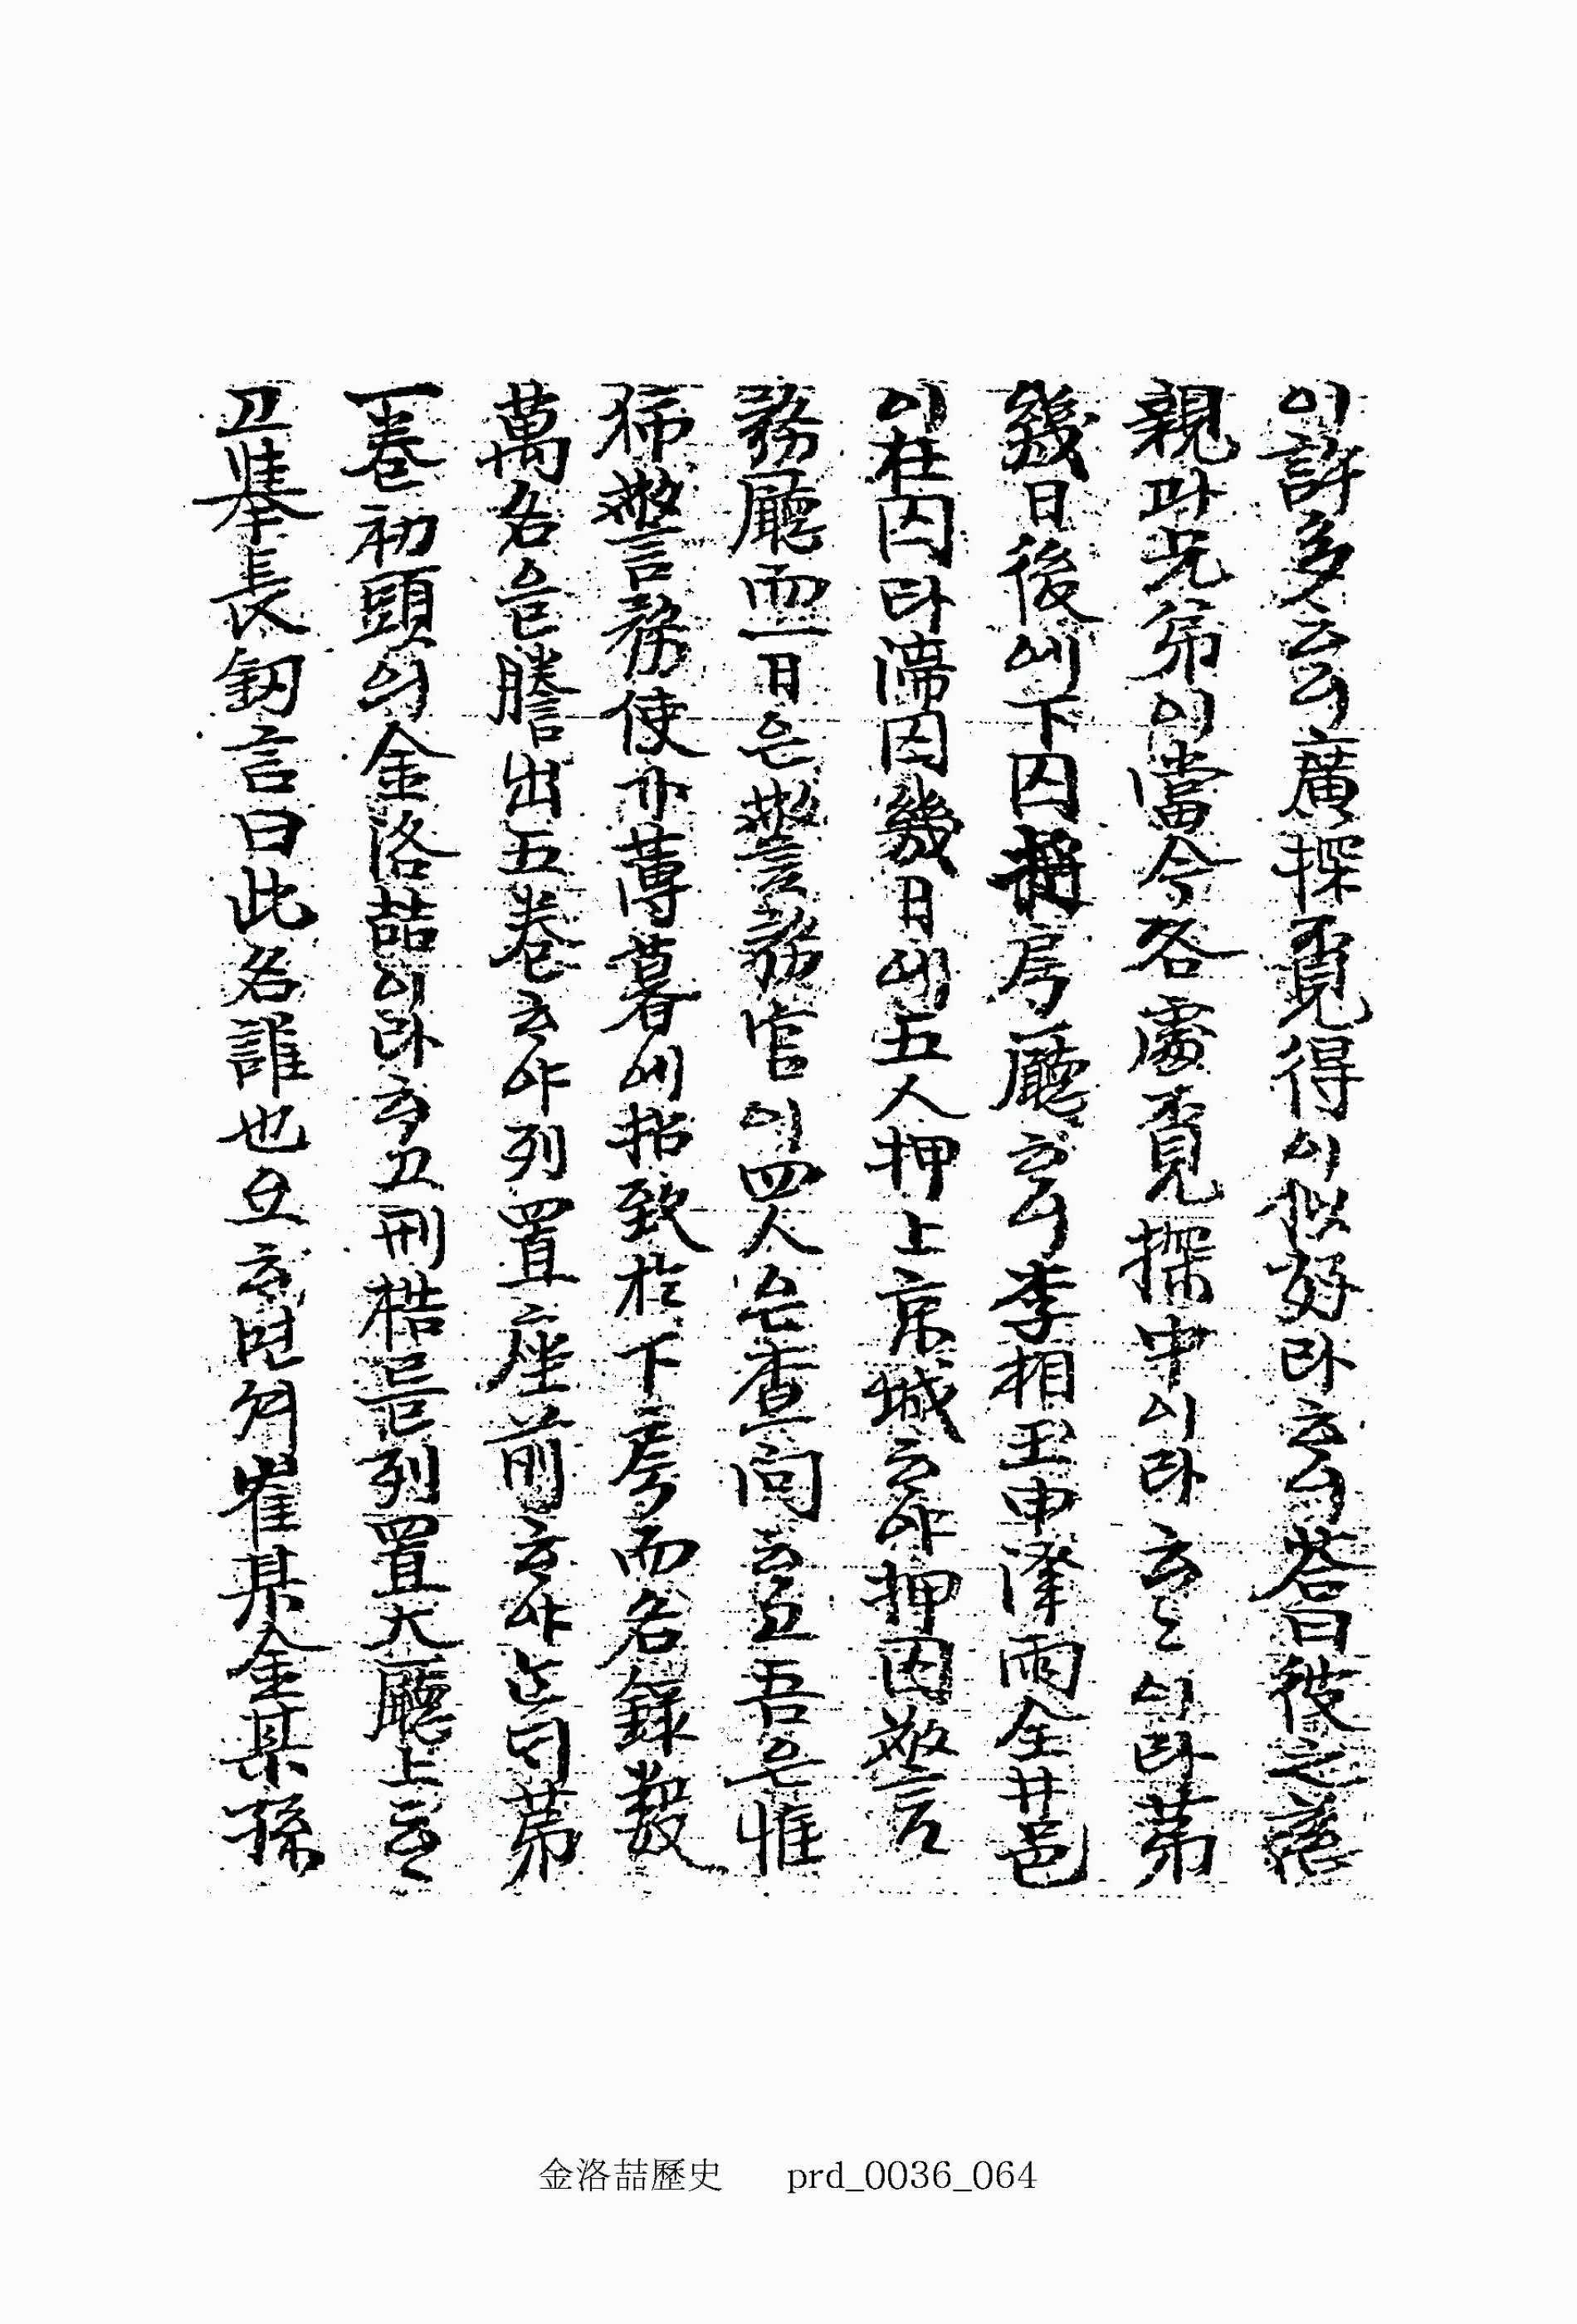 이許多云ᄒᆞ고廣探覓得이似好라ᄒᆞ고答曰彼之
親과兄弟이當今各處覓探中이라ᄒᆞᄒᆞ이라第
幾日後에下囚房廳ᄒᆞ고李相玉申澤雨全廿邑
이在囚라滯囚幾日에五人押上京城ᄒᆞ야押囚警
務廳而一日은警務官이四人을查問ᄒᆞ고吾은惟
獨警務使가薄暮에招致於下房而名錄數
萬名을謄出五卷ᄒᆞ야列置座前ᄒᆞ야니른第
一卷初頭의金洛喆이라ᄒᆞ고刑梏을列置大廳上ᄒᆞ
고擧長釰言曰此名誰也오ᄒᆞ면셔崔某金某孫
金洛喆歷史 prd_0036_064